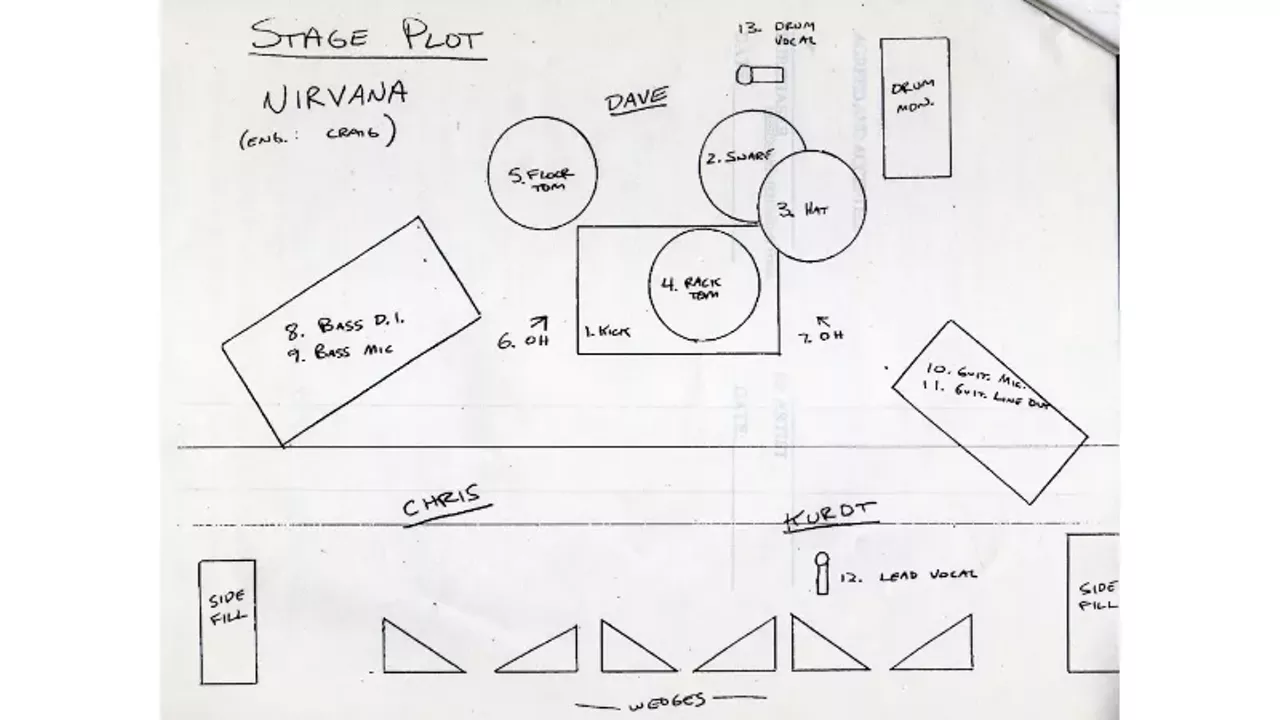 STAGE PLOT
NIRVANA
(ENG.: CRAIG)
DAVE
13. DRUM
VOCAL
DRUM
MON.
5. FLOOR
TOM
2. SNARE
3. HAT
4. RACK
TOM
1. KICK
6. OH
7. OH
8. BASS D.I.
9. BASS MIC
10. GUIT. MIC.
11. GUIT. LINE OUT
CHRIS
KURDT
12. LEAD VOCAL
SIDE
FILL
SIDE
FILL
WEDGES